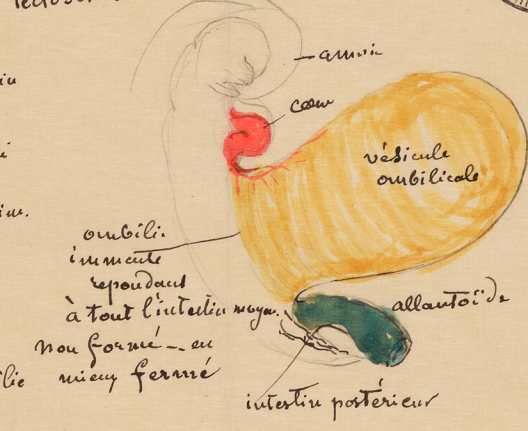 amnios
cœur
vésicule
ombilicale
ombilic
immense
répondant
à tout l'intestin moyen.
non formé — ou
mieux fermé
allantoïde
intestin postérieur